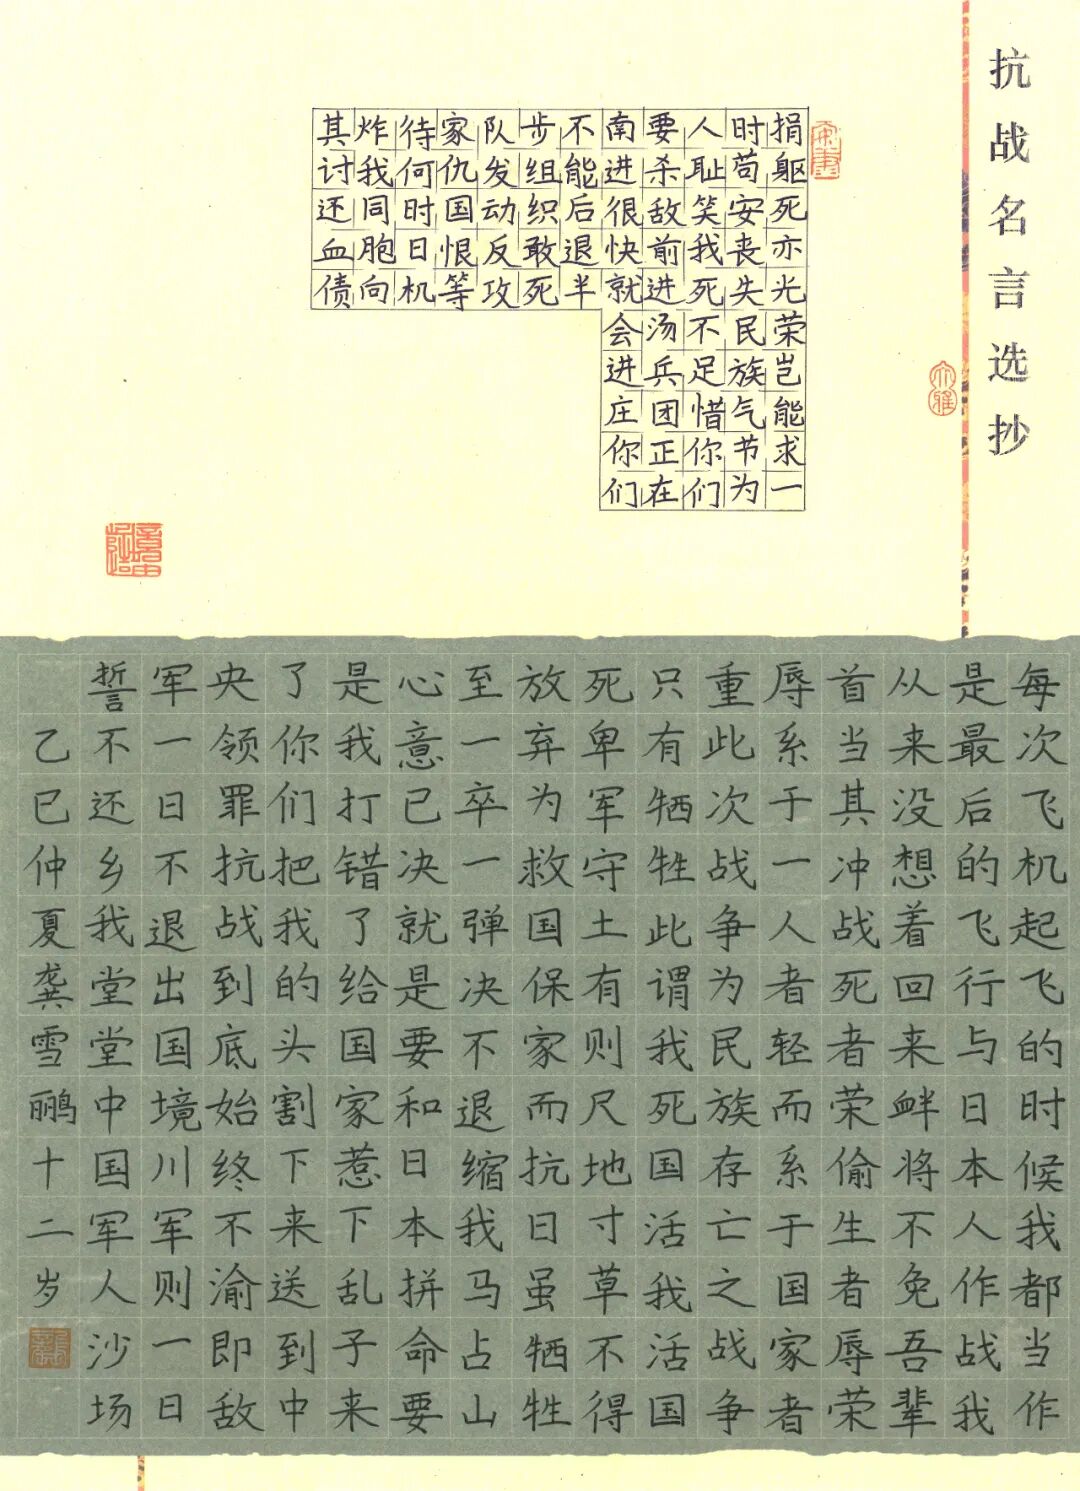 抗战名言选抄
每次飞机起飞的时候我都当作
是最后的飞行与日本人作战我
从来没想着回来衅将不免吾辈
首当其冲战死者荣偷生者辱荣
辱系于一人者轻而系于国家者
重此次战争为民族存亡之战争
只有牺牲此谓我死国活我活国
死卑军守土有则尺地寸草不得
放弃为救国保家而抗日虽牺牲
至一卒一弹决不退缩我马占山
心意已决就是要和日本拼命要
是我打错了给国家惹下乱子来
了你们把我的头割下来送到中
央领罪抗战到底始终不渝即敌
军一日不退出国境川军则一日
誓不还乡我堂堂中国军人沙场
捐躯死亦光荣岂能求一
时苟安丧失民族气节为
人耻笑我死不足惜你们
要杀敌前进汤兵团正在
南进很快就会进庄你们
不能后退半
步组织敢死
队发动反攻
家仇国恨等
待何时日机
炸我同胞向
其讨还血债
乙巳仲夏龚雪鹂十二岁